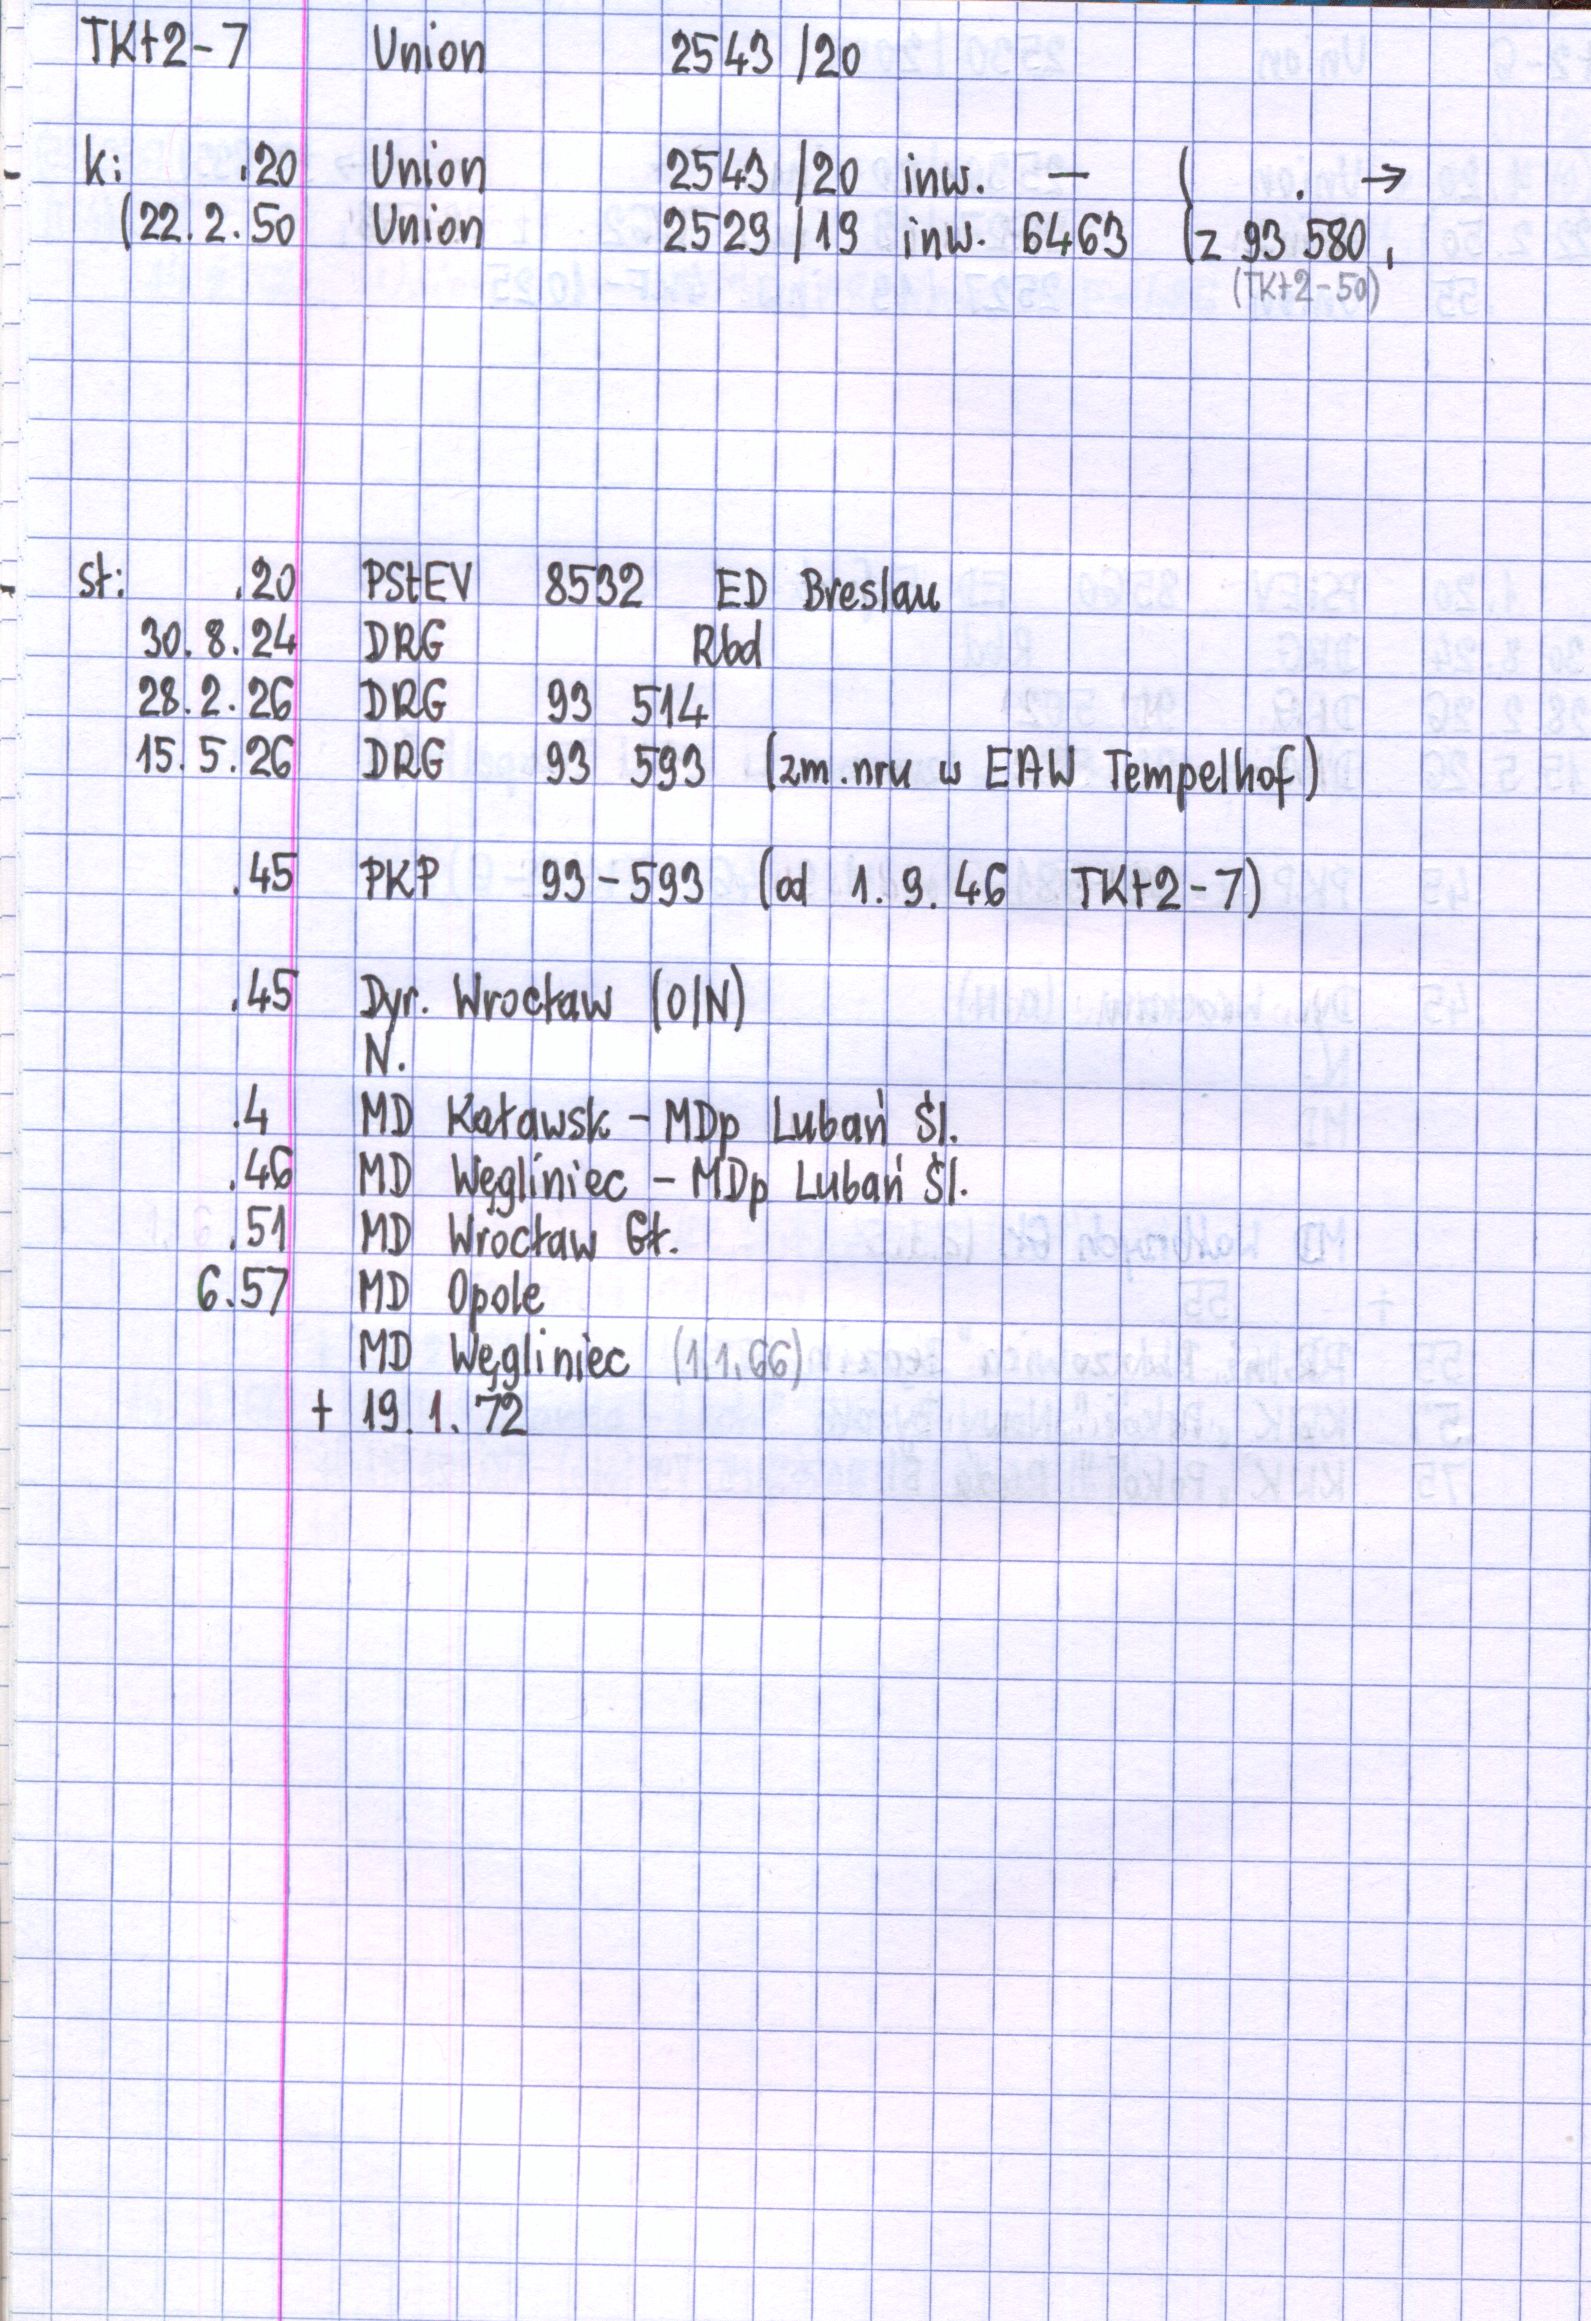 TKt2-7 Union 2543/20
k: .20 Union 2543/20 inw. — ( . →
(22.2.50 Union 2529/19 inw. 6463 (z 93 580,
(TKt2-50)
st: .20 PStEV 8532 ED Breslau
30.8.24 DRG Rbd
28.2.26 DRG 93 514
15.5.26 DRG 93 593 (zm.nru w EAW Tempelhof)
.45 PKP 93-593 (od 1.9.46 TKt2-7)
.45 Dyr. Wrocław (O/N)
N.
.4 MD Kaławsk - MDp Lubań Śl.
.46 MD Węgliniec - MDp Lubań Śl.
.51 MD Wrocław Gł.
6.57 MD Opole
MD Węgliniec (1.1.66)
+ 19.1.72